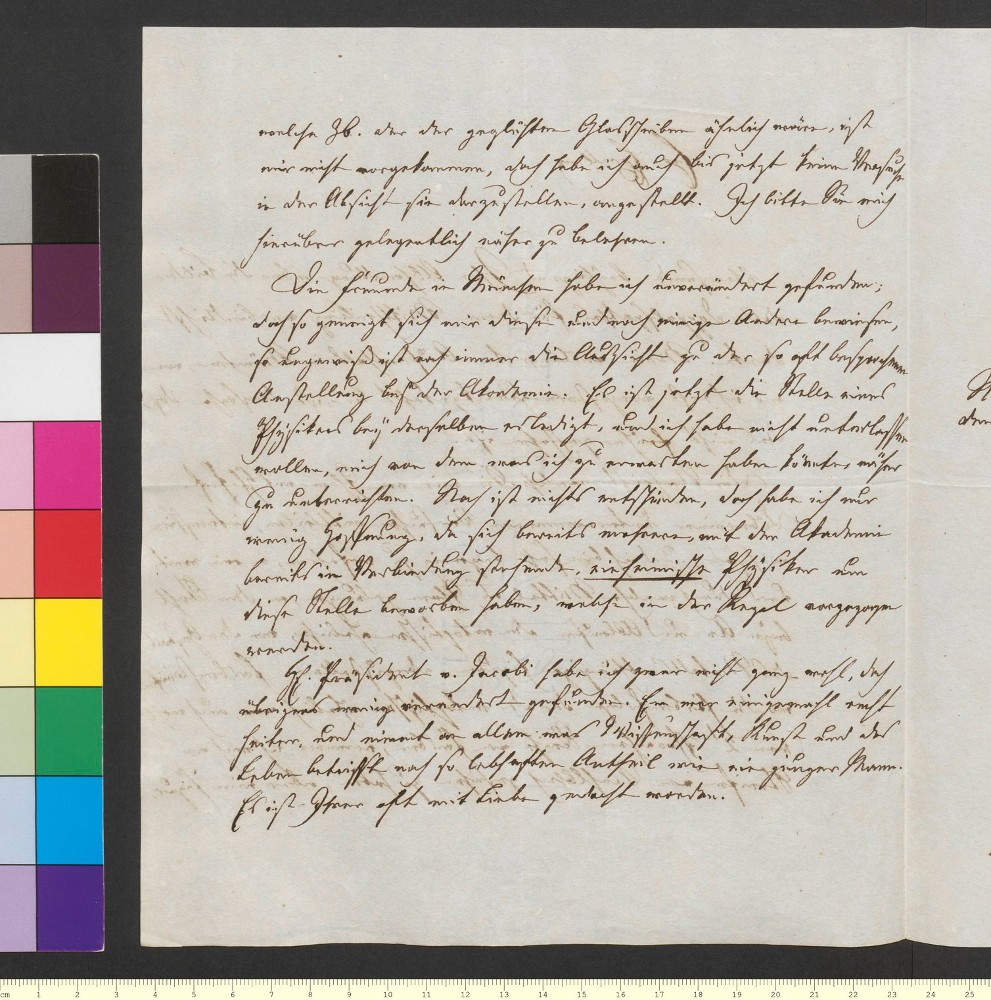 welche zb. der der geglühten Glasscheiben ähnlich wäre, ist
mir nicht vorgekommen, doch habe ich auch bis jetzt keine Versuche
in der Absicht sie darzustellen, angestellt. Ich bitte Sie mich
hierüber gelegentlich näher zu belehren.
Die Freunde in München habe ich unverändert gefunden;
doch so geneigt sich mir diese und noch einige Andere bewiesen,
so ungewiß ist noch immer die Aussicht zu der so oft besprochenen
Anstellung bey der Akademie. Es ist jetzt die Stelle eines
Physikers bey derselben erledigt, und ich habe nicht unterlassen
wollen, mich von dem was ich zu erwarten haben könnte, näher
zu unterrichten. Noch ist nichts entschieden, doch habe ich nur
wenig Hoffnung, da sich bereits mehrere, mit der Akademie
bereits in Verbindung stehende, einheimische Physiker um
diese Stelle beworben haben, welche in der Regel vorgezogen
werden.
H. Präsident v. Jacobi habe ich zwar nicht ganz wohl, doch
übrigens wenig verändert gefunden. Er war einigemahl recht
heiter, und nimmt an allem was Wissenschaft, Kunst und das
Leben betrifft noch so lebhaften Antheil wie ein junger Mann.
Es ist Ihrer oft mit Liebe gedacht worden.